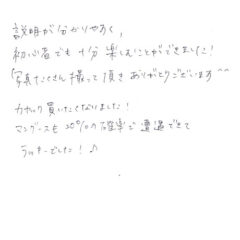 説明が分かりやすく、
初心者でも十分楽しむことができました！
写真たくさん撮って頂きありがとうございます^^
カヤック買いたくなりました！
マングースも20%の確率で遭遇できて
ラッキーでした！♪